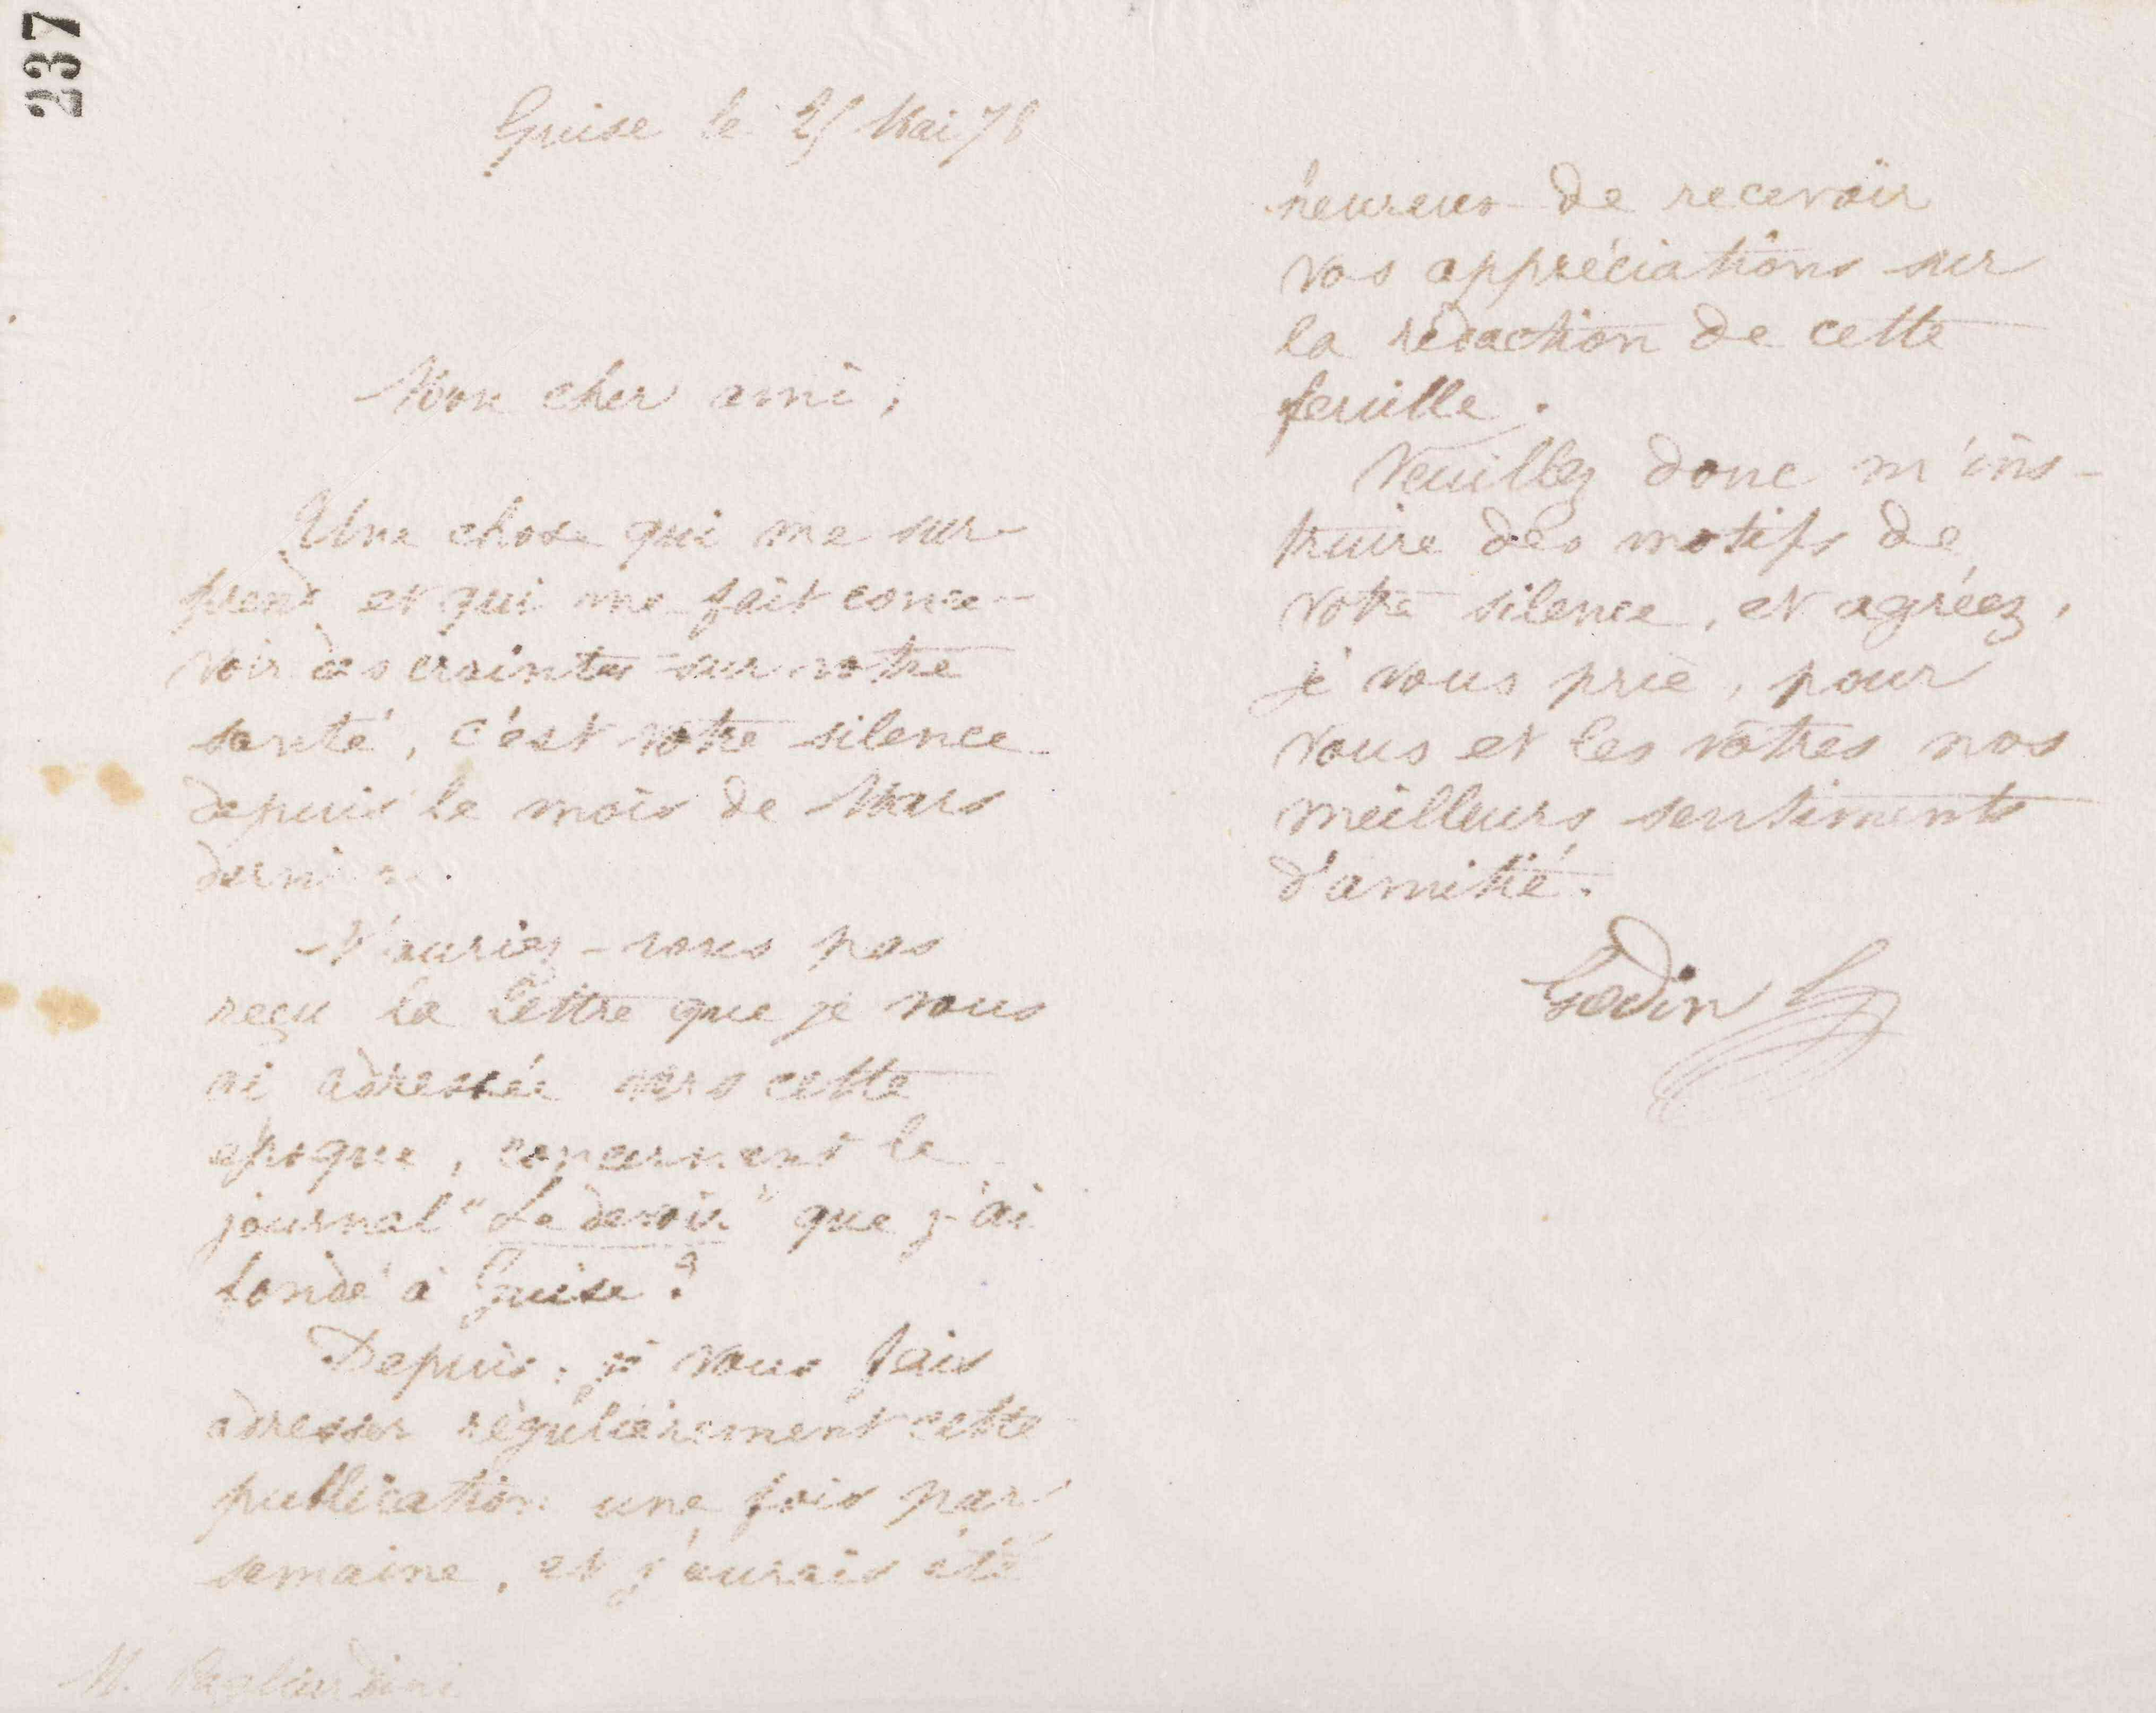 237
Guise le 25 Mai 78
Mon cher ami,
Une chose qui me sur-
prend et qui me fait conce-
voir des craintes sur votre
santé, c'est votre silence
depuis le mois de Mars
dernier.
N'auriez-vous pas
reçu la lettre que je vous
ai adressée vers cette
époque, concernant le
journal "Le devoir" que j'ai
fondé à Guise ?
Depuis, je vous fais
adresser régulièrement cette
publication une fois par
semaine, et j'aurais été
M. Pagliardini
heureux de recevoir
vos appréciations sur
la rédaction de cette
feuille.
Veuillez donc m'ins-
truire des motifs de
votre silence, et agréez,
je vous prie, pour
vous et les vôtres nos
meilleurs sentiments
d'amitié.
Godin